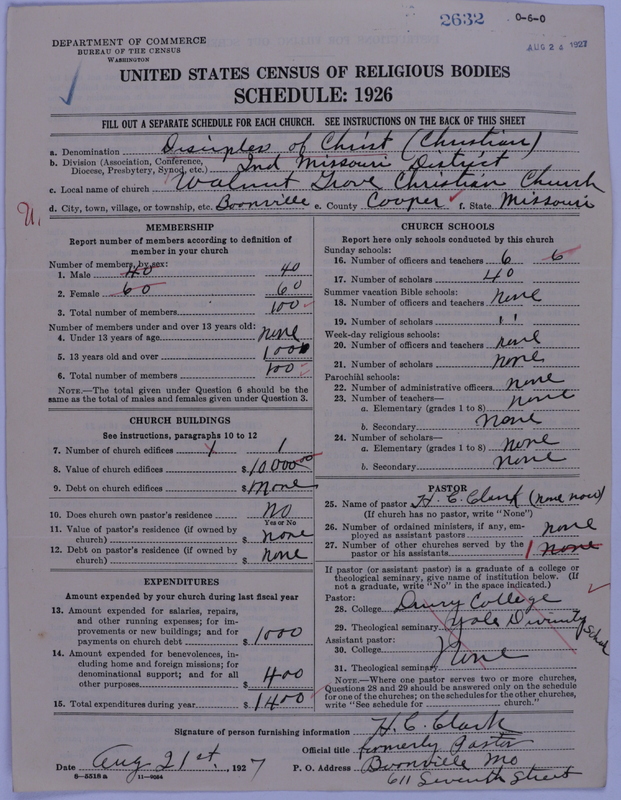 2632
0-6-0
AUG 24 1927
DEPARTMENT OF COMMERCE
BUREAU OF THE CENSUS
WASHINGTON
UNITED STATES CENSUS OF RELIGIOUS BODIES
SCHEDULE: 1926
FILL OUT A SEPARATE SCHEDULE FOR EACH CHURCH. SEE INSTRUCTIONS ON THE BACK OF THIS SHEET
a. Denomination Disciples of Christ (Christian)
b. Division (Association, Conference, Diocese, Presbytery, Synod, etc.) 2nd Missouri District
c. Local name of church Walnut Grove Christian Church
d. City, town, village, or township, etc. Boonville e. County Cooper f. State Missouri
MEMBERSHIP
Report number of members according to definition of
member in your church
Number of members, by sex:
1. Male 40 40
2. Female 60 60
3. Total number of members 100
Number of members under and over 13 years old:
4. Under 13 years of age none
5. 13 years old and over 100
6. Total number of members 100
NOTE.—The total given under Question 6 should be
same as the total of males and females given under Question 3.
CHURCH BUILDINGS
See instructions, paragraphs 10 to 12
7. Number of church edifices 1 1
8. Value of church edifices $10,000.00
9. Debt on church edifices $None
10. Does church own pastor's residence? No
Yes or No
11. Value of pastor's residence (if owned by
church) $ none
12. Debt on pastor's residence (if owned by
church) $ none
EXPENDITURES
Amount expended by your church during last fiscal year
13. Amount expended for salaries, repairs,
and other running expenses; for im-
provements or new buildings; and for
payments on church debt $ 1000
14. Amount expended for benevolences, in-
cluding home and foreign missions; for
denominational support; and for all
other purposes $ 400
15. Total expenditures during year $ 1400
CHURCH SCHOOLS
Report here only schools conducted by this church
Sunday schools:
16. Number of officers and teachers 6 6
17. Number of scholars 40
Summer vacation Bible schools:
18. Number of officers and teachers none
19. Number of scholars " "
Week-day religious schools:
20. Number of officers and teachers none
21. Number of scholars none
Parochial schools:
22. Number of administrative officers none
23. Number of teachers—
a. Elementary (grades 1 to 8) none
b. Secondary none
24. Number of scholars—
a. Elementary (grades 1 to 8) none
b. Secondary none
PASTOR
25. Name of pastor H. C. Clark (none now)
(If church has no pastor, write "None")
26. Number of ordained ministers, if any, em-
ployed as assistant pastors none
27. Number of other churches served by the
pastor or his assistants 1 none
If pastor (or assistant pastor) is a graduate of a college or
theological seminary, give name of institution below. (If
not a graduate, write "No" in the space indicated.)
Pastor:
28. College Drury College
29. Theological seminary Yale Divinity School
Assistant pastor:
30. College
31. Theological seminary None
NOTE.—Where one pastor serves two or more churches,
Questions 28 and 29 should be answered only on the schedule
for one of the churches; on the schedules for the other churches,
write "See schedule for church."
Signature of person furnishing information H. C. Clark
Official title formerly Pastor
Date Aug 21st, 1927 P. O. Address Boonville Mo
611 Seventh Street
6—5518 a 11—9064